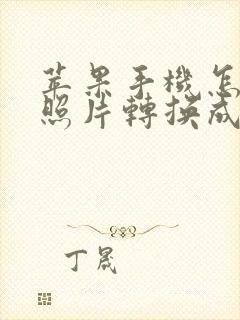 苹果手機怎
照片轉換成
丁晟